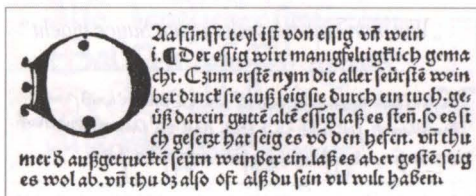 Das fünfft teyl ist von essig vñ wein
i. ¶ Der essig wirt manigfeltigklich gema
cht. Czum erstẽ nym die aller seürstẽ wein
ber druck sie auß seig sie durch ein tuch. ge
üß darein guttẽ altẽ essig laß es stẽn. so es si
ch gesetzt hat seig es võ den hefen. vñ thu
mer ð außgetrucktẽ seürn weinber ein. laß es aber gestẽ. seig
es wol ab. vñ thu dz also oft alß du sein vil wilt haben.